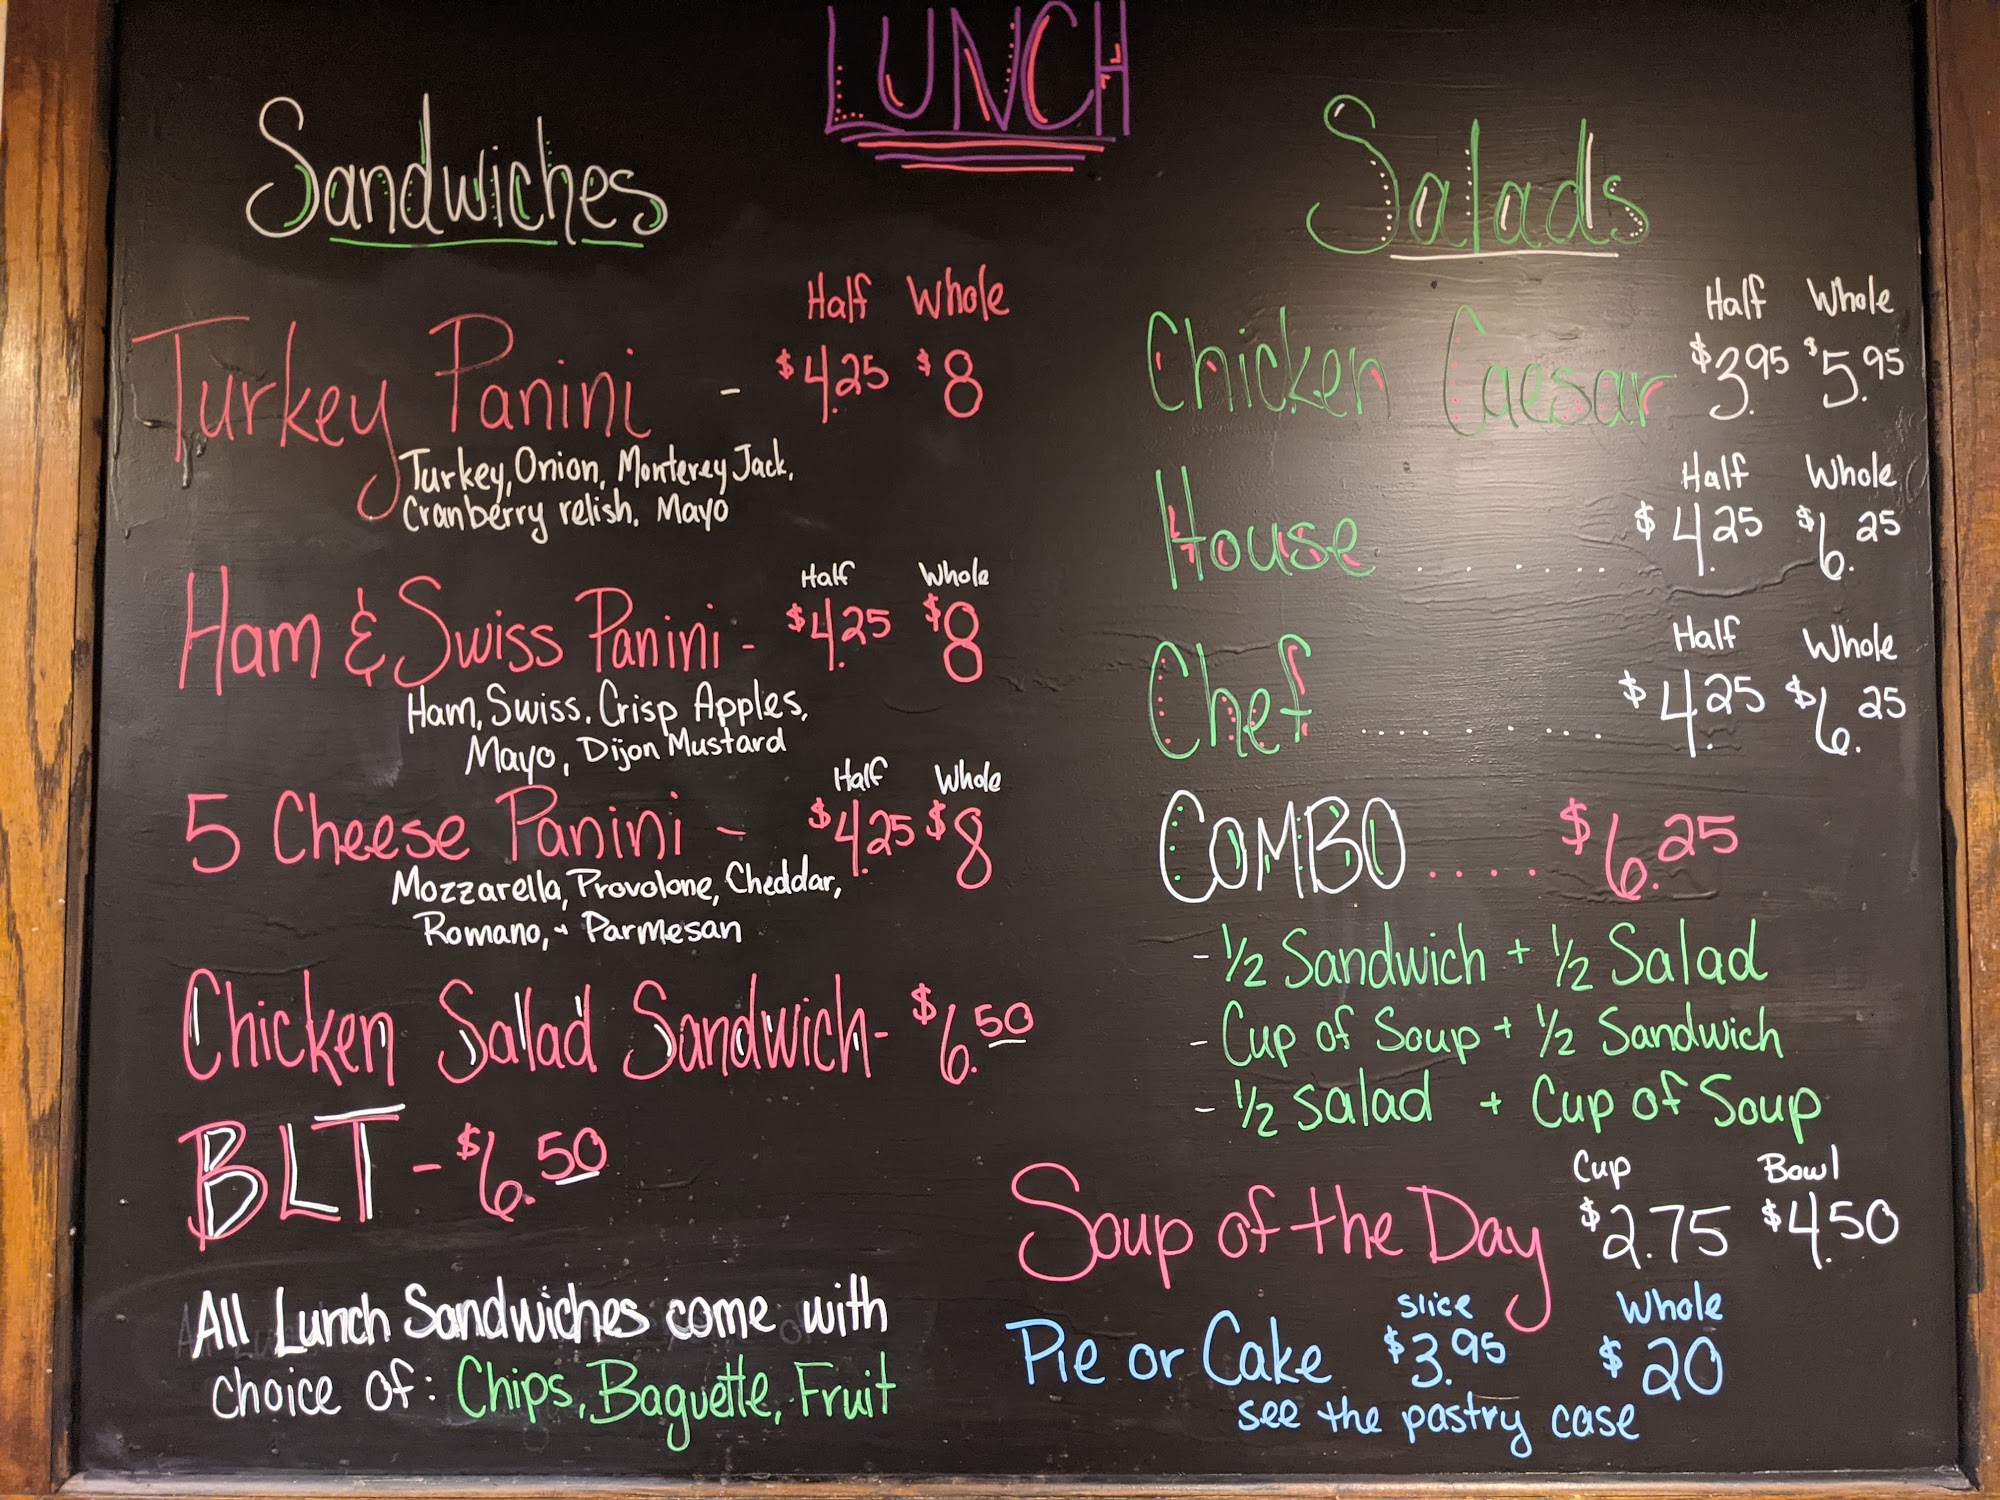 LUNCH
Sandwiches
Half Whole
Turkey Panini - $4.25 $8
Turkey, Onion, Monterey Jack,
Cranberry relish, Mayo
Half Whole
Ham & Swiss Panini - $4.25 $8
Ham, Swiss, Crisp Apples,
Mayo, Dijon Mustard
Half Whole
5 Cheese Panini - $4.25 $8
Mozzarella, Provolone, Cheddar,
Romano, + Parmesan
Chicken Salad Sandwich - $6.50
BLT - $6.50
All Lunch Sandwiches come with
choice of: Chips, Baguette, Fruit
Salads
Half Whole
Chicken Caesar $3.95 $5.95
Half Whole
House ....... $4.25 $6.25
Half Whole
Chef ........ $4.25 $6.25
COMBO .... $6.25
- 1/2 Sandwich + 1/2 Salad
- Cup of Soup + 1/2 Sandwich
- 1/2 Salad + Cup of Soup
Cup Bowl
Soup of the Day $2.75 $4.50
Slice Whole
Pie or Cake $3.95 $20
see the pastry case